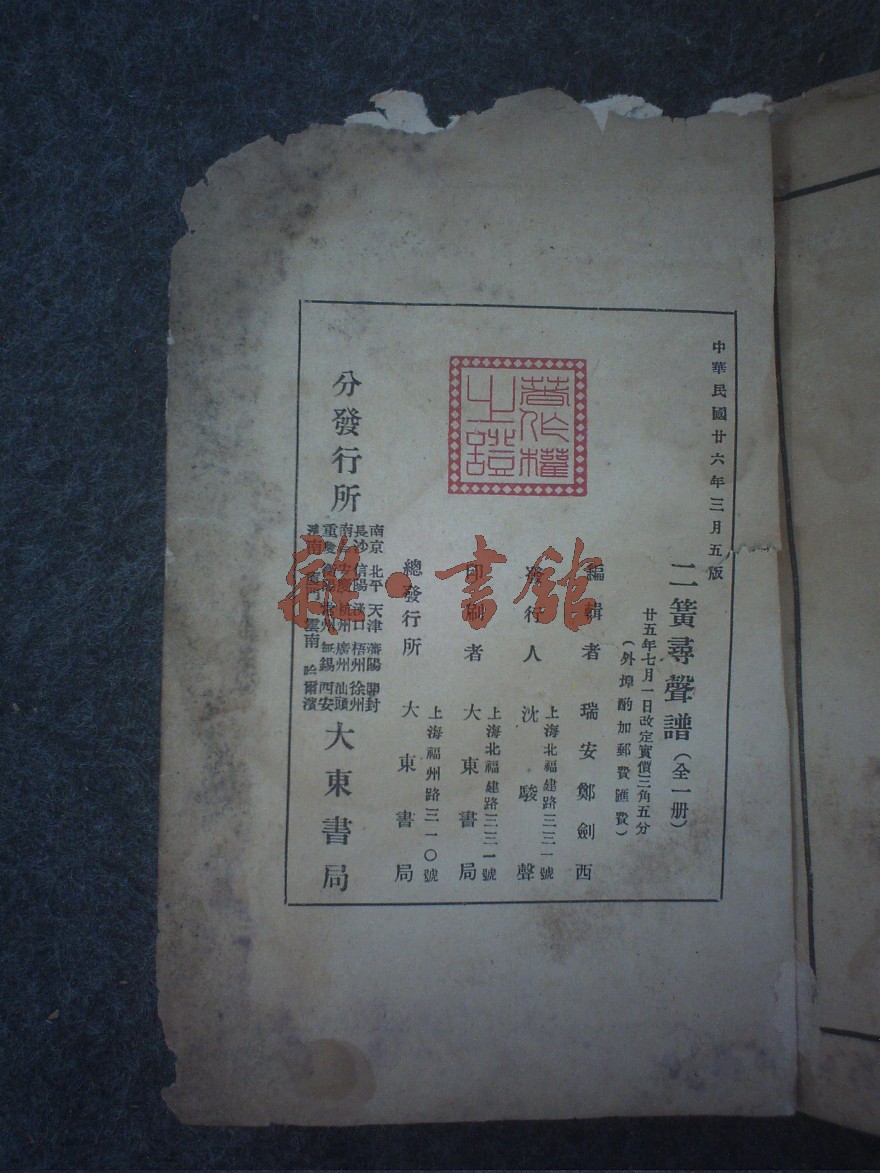 中華民國廿六年三月五版
二簧尋聲譜（全一册）
廿五年七月一日改定實價三角五分
（外埠酌加郵費匯費）
編輯者 瑞安鄭劍西
發行人 沈駿聲
上海北福建路三三一號
印刷者 大東書局
上海北福建路三三一號
總發行所 大東書局
上海福州路三一〇號
著作權
之證
分發行所
南京 北平 天津 瀋陽 開封
長沙 信陽 漢口 梧州 徐州
南 安慶 杭州 廣州 汕頭
重慶 衡陽 常州 無錫 西安
南 雲南 哈爾濱
大東書局
雜·書館